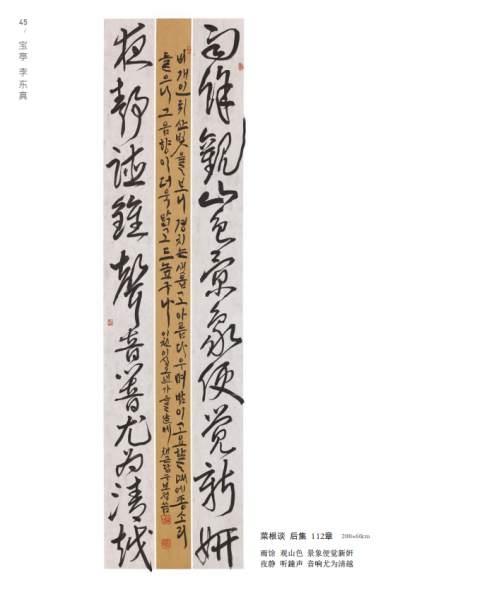 45
/
宝亭 李东真
雨馀觀山色景象便覚新妍
비 개인 뒤 산빛을 보니 경치는 새롭고 아름다우며 밤이 고요할 때에 종소리
들으니 그 음향이 더욱 맑고 드높구나
夜静聴鐘聲音響尤为清越
菜根谈 后集 112章 200×60km
雨馀 观山色 景象便觉新妍
夜静 听鐘声 音响尤为清越